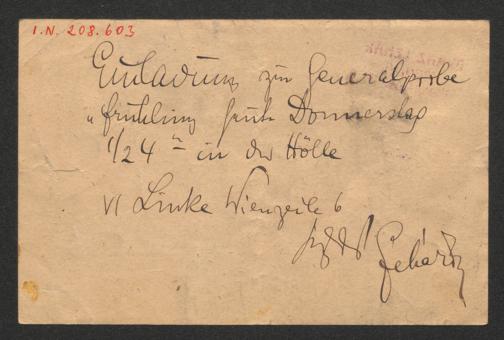 I.N. 208.603
Einladung zur Generalprobe
„Frühling heute Donnerstag
1/2 4 h in der Hölle
VI Linke Wienzeile 6